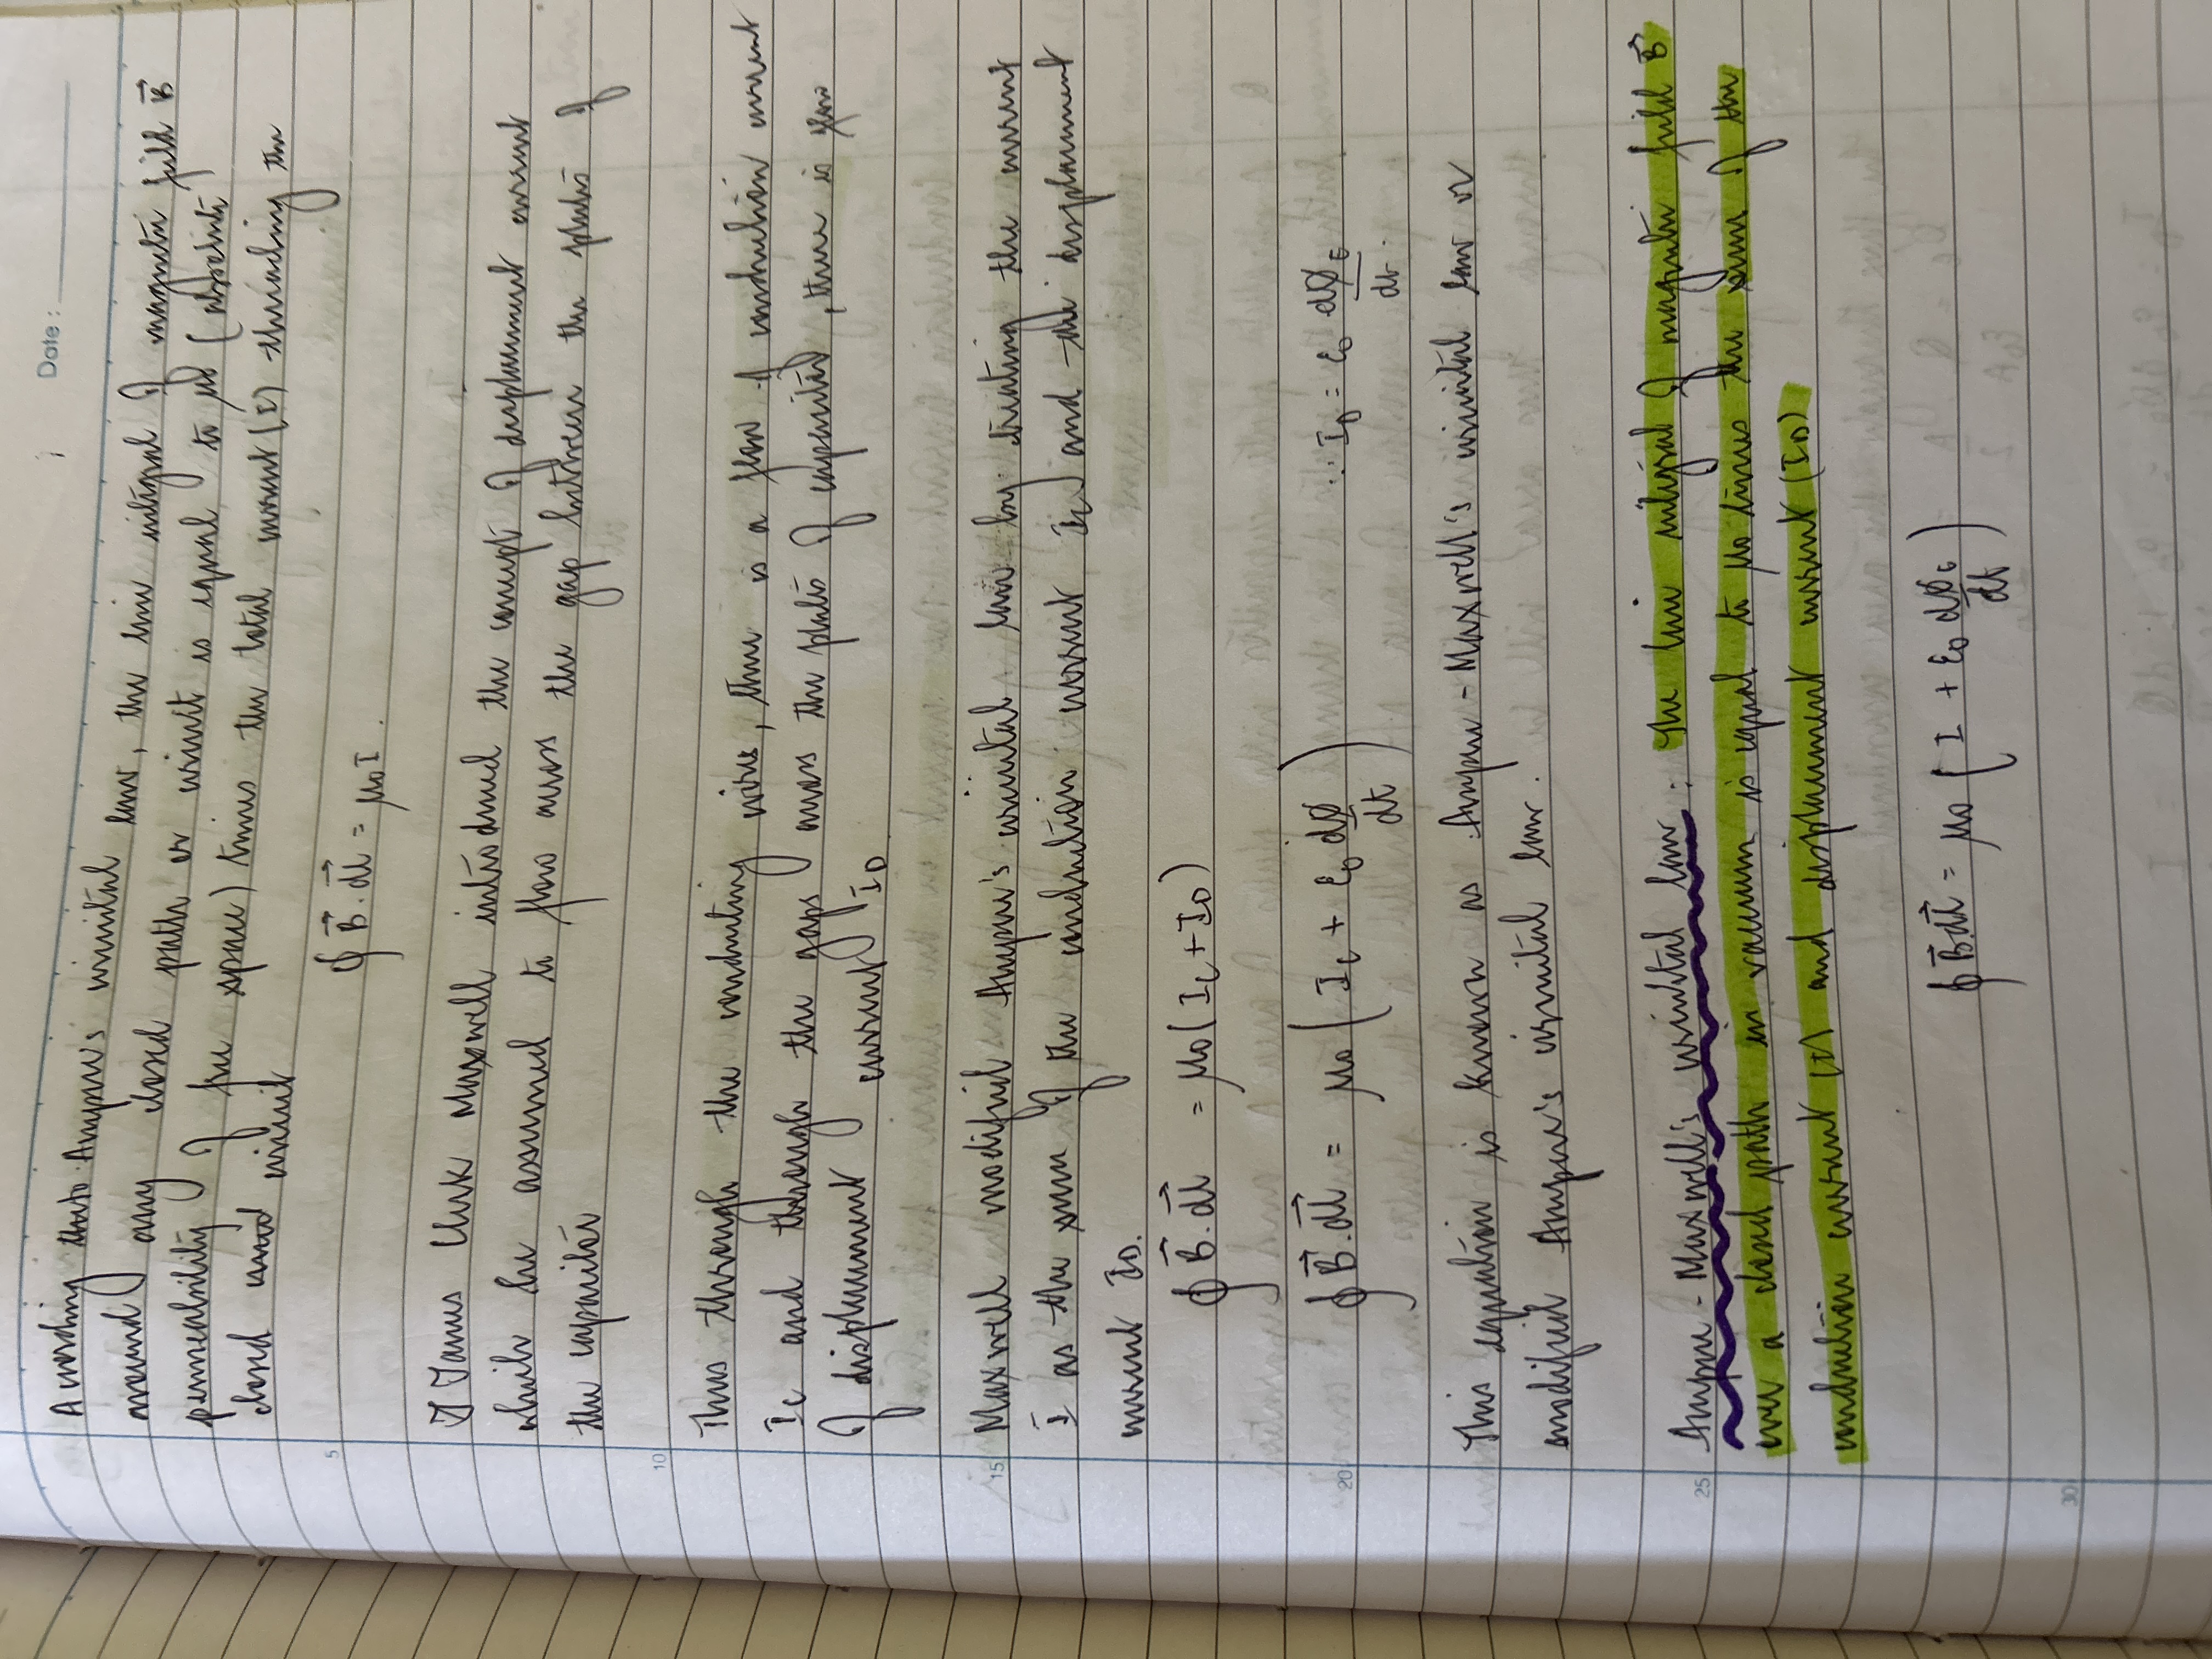 Date:
According to Ampere's circuital law, the line integral of magnetic field B⃗
around any closed path or circuit is equal to μ0 (absolute
permeability of free space) times the total current (I) threading the
closed circuit
∮ B⃗.dl⃗ = μ0I.
5
James Clerk Maxwell introduced the concept of displacement current
which he assumed to flow across the gap between the plates of
the capacitor
10
Thus through the conducting wires, there is a flow of conduction current
Ic and through the gaps across the plates of capacitor, there is flow
of displacement current ID
Maxwell modified Ampere's circuital law by treating the current
15
I as the sum of the conduction current Ic and the displacement
current ID.
∮ B⃗.dl⃗ = μ0(Ic + ID)
∮ B⃗.dl⃗ = μ0 (Ic + ε0 dØ/dt) ∵ ID = ε0 dØE/dt.
20
This equation is known as Ampere - Maxwell's circuital law or
modified Ampere's circuital law.
Ampere - Maxwell's circuital law: The line integral of magnetic field B⃗
25
over a closed path in vacuum is equal to μ0 times the sum of the
conduction current (I) and displacement current (ID)
∮ B⃗.dl⃗ = μ0 (I + ε0 dØE/dt)
30